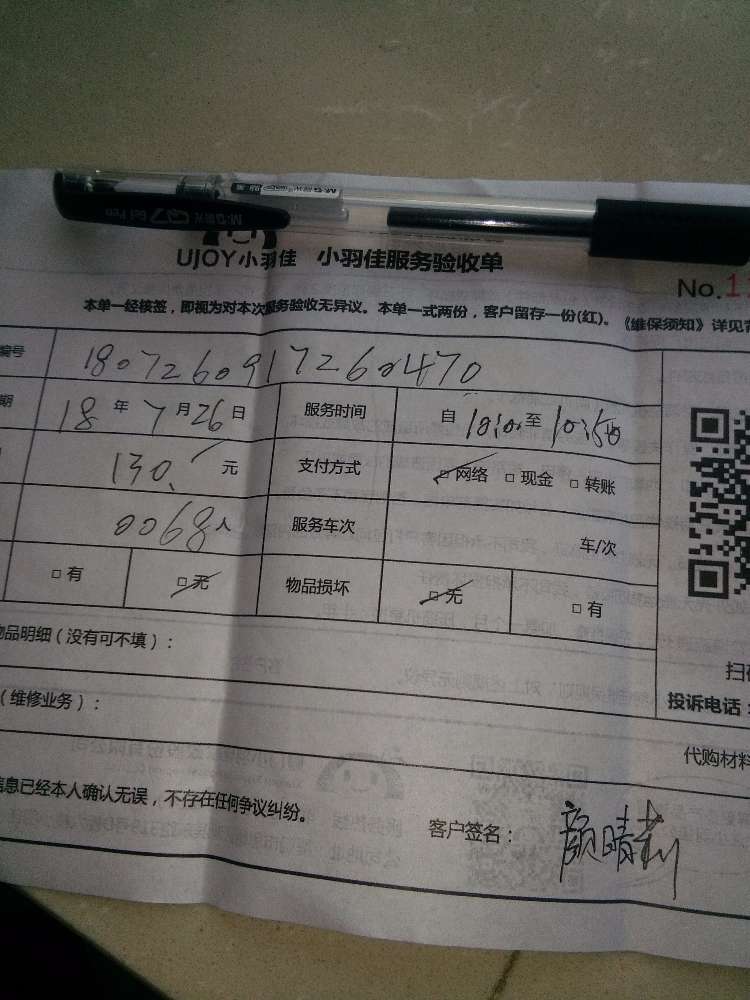 M&G 晨光 Q7 Gel Pen
UJOY小羽佳 小羽佳服务验收单
No.1
本单一经核签，即视为对本次服务验收无异议。本单一式两份，客户留存一份(红)。《维保须知》详见背
编号 180726091726 470
期 18 年 7 月 26 日 服务时间 自 10:00 至 10:50
130. 元 支付方式 □ 网络 □ 现金 □ 转账
0068 人 服务车次 车/次
□ 有 □ 无 物品损坏 □ 无 □ 有
物品明细（没有可不填）：
（维修业务）：
扫
投诉电话：
代购材料
信息已经本人确认无误，不存在任何争议纠纷。
客户签名： 颜晴莉